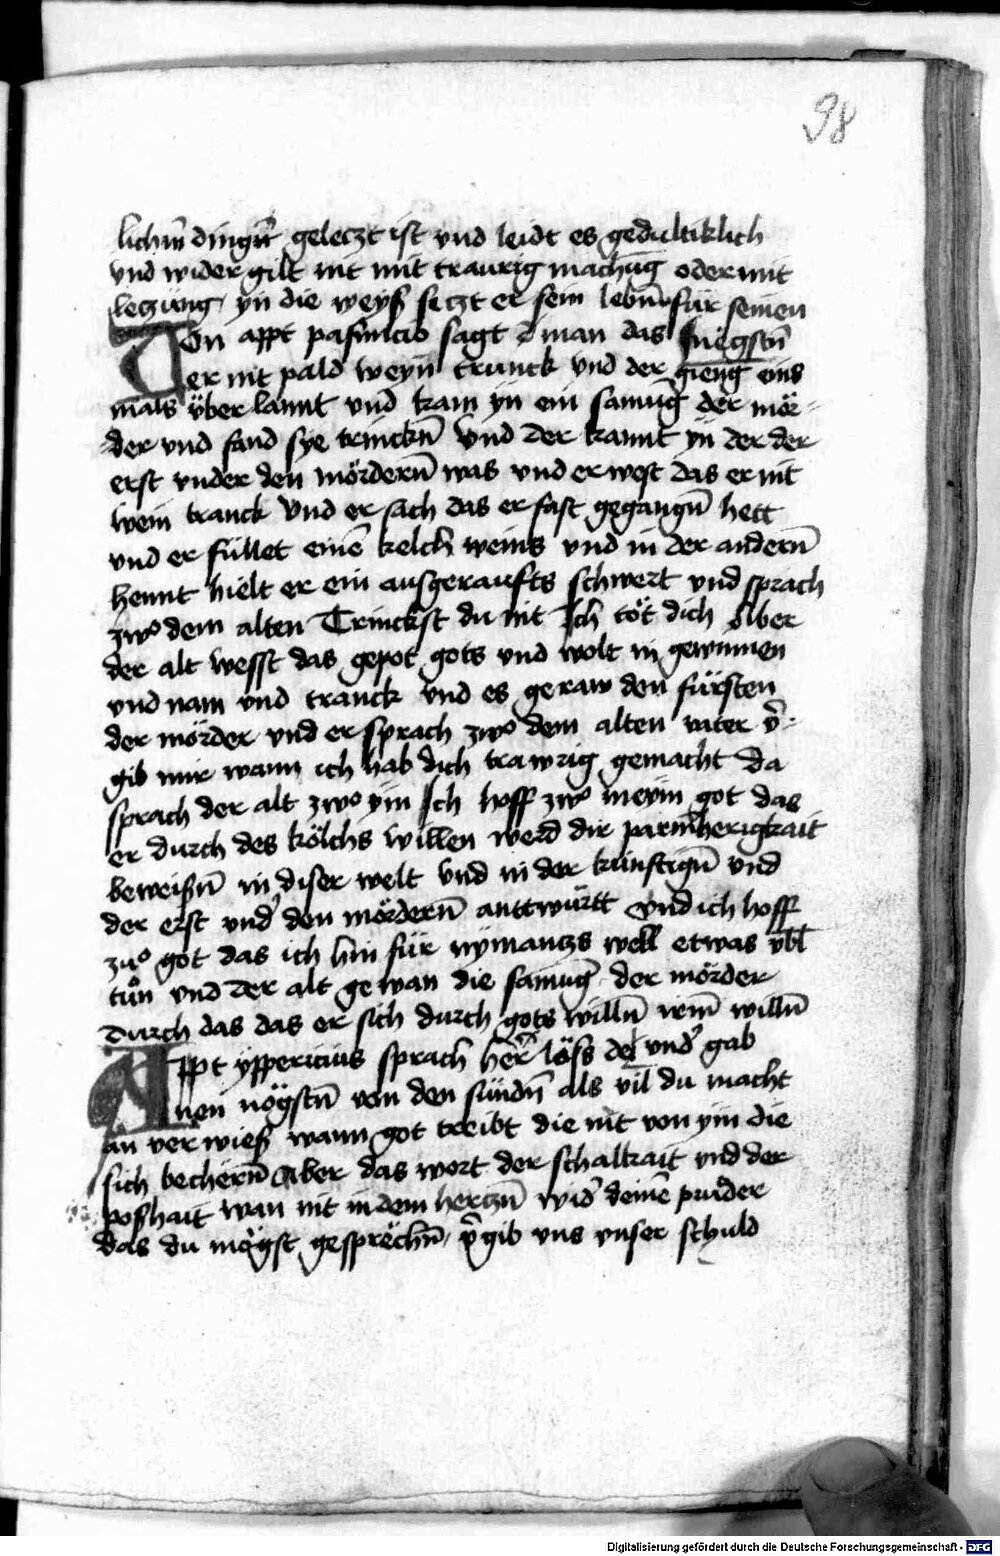 98
lichen dingen geleczt ist vnd leidt es gedultiklich
vnd wider gilt nit mit traurig machūg oder mit
leczūng yn die weyß seczt er sein lebñ für seinen
Von appt pasuncio sagt man das nëgstñ
er nit pald weyn trunck vnd der gieng eins
mals v̈ber lannt vnd kam yn ein samūg der mör-
der vnd fand sye trinckñ vnd der kannt yn der der
erst vnder den mörderñ was vnd er west das er nit
wein tranck vnd er sach das er fast gegangñ hett
vnd er füllet einē kelch weins vnd in der anderñ
hennt hielt er ein ausgeraufts schwert vnd sprach
zwo dem alten Trinckst du nit Ich töt dich Aber
der alt wesst das gepot gots vnd wolt in gewinnen
vnd nam vnd tranck vnd es geraw den fürsten
der mörder vnd er sprach zwo dem alten vater v̄-
gib mir wann ich hab dich trawrig gemacht da
sprach der alt zwo ym Ich hoff zwo meym got das
er durch des kölchs willen werd dir parmherigkait
beweißñ in diser welt vnd in der künftigñ vnd
der erst vnd̄ den mörderñ anttwürtt vnd ich hoff
zuo got das ich hin für nymantzs well etwas v̈bl
tůn vnd der alt gewan die samūg der mörder
durch das das er sich durch gots willñ irem willñ
APpt yppericius sprach her löss de vnd̄ gab
nen nögstñ von den sündñ als vil du macht
an verwieß wann got treibt die nit von ym die
sich becherñ Aber das wort der schalkait vnd der
poßhait wan nit in dem herczñ wid̄ deinē pruder
das du mögst gesprëchñ v̄gib vns vnser schuld
Digitalisierung gefördert durch die Deutsche Forschungsgemeinschaft - DFG